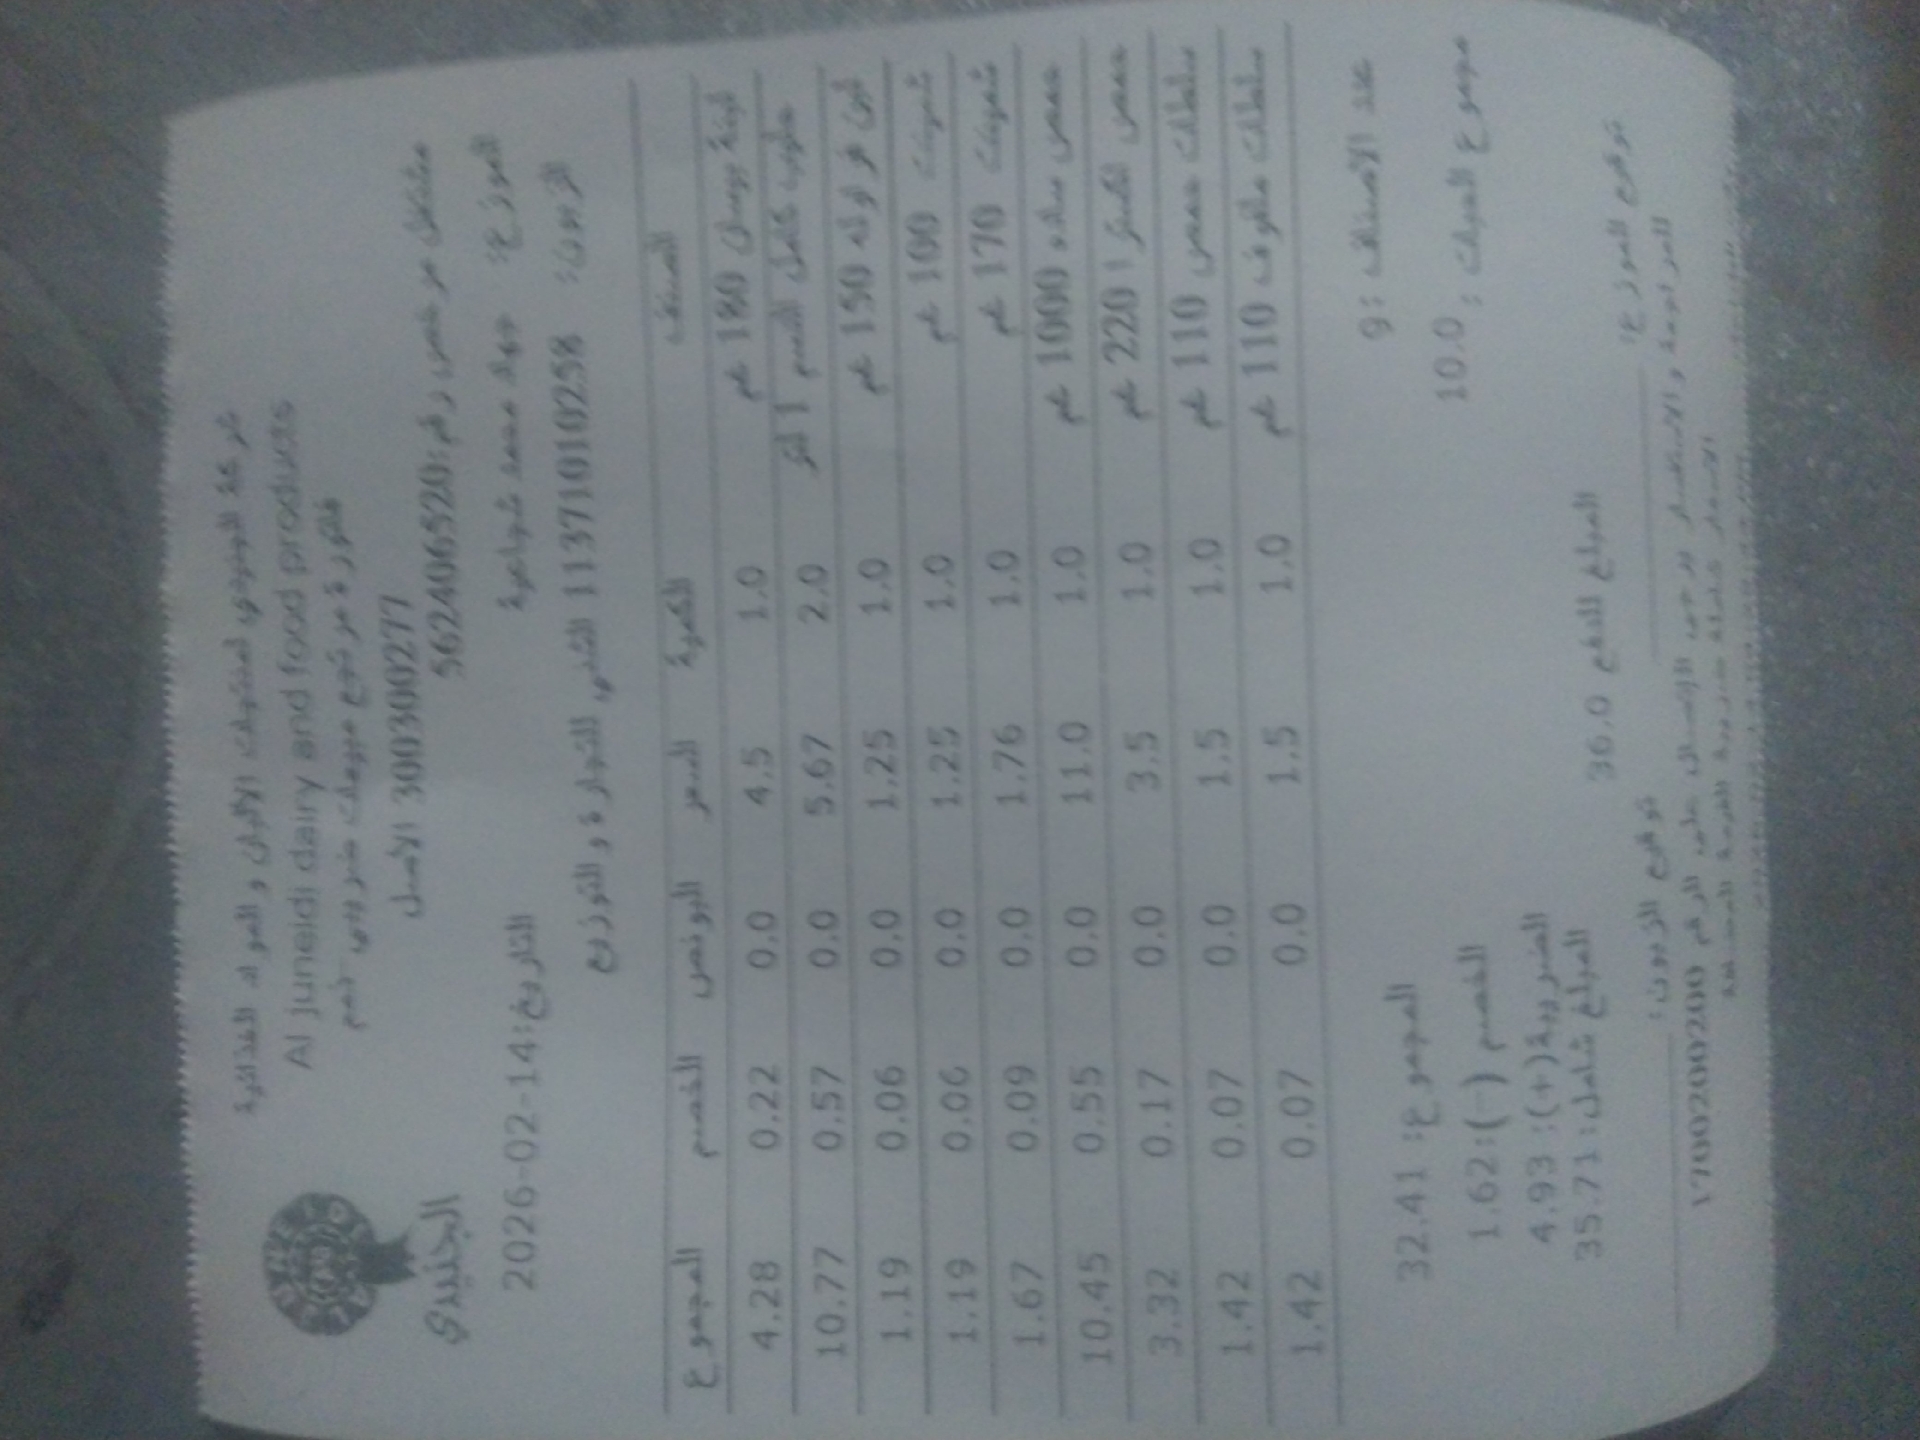 الجنيدي
شركة الجنيدي لمنتجات الالبان و المواد الغذائية
Al juneidi dairy and food products
فاتورة مرتجع مبيعات ضريبي خصم
300300277 الأصل
مشتغل مرخص رقم:562406520
الموزع: جهاد محمد شواعرة
التاريخ:2026-02-14
الزبون: 11371010258 الثنى للتجارة و التوزيع
الصنف الكمية السعر البونص الخصم المجموع
لبنة بوسان 180 غم 1.0 4.5 0.0 0.22 4.28
حليب كامل الدسم 1 لتر 2.0 5.67 0.0 0.57 10.77
لبن فراوله 150 غم 1.0 1.25 0.0 0.06 1.19
شمينت 100 غم 1.0 1.25 0.0 0.06 1.19
شمينت 170 غم 1.0 1.76 0.0 0.09 1.67
حمص ساده 1000 غم 1.0 11.0 0.0 0.55 10.45
حمص اكسترا 220 غم 1.0 3.5 0.0 0.17 3.32
سلطات حمص 110 غم 1.0 1.5 0.0 0.07 1.42
سلطات ملفوف 110 غم 1.0 1.5 0.0 0.07 1.42
عدد الاصناف :9
المجموع: 32.41
مجموع الحبات : 10.0
الخصم (-):1.62
الضريبة(+): 4.93
المبلغ شامل: 35.71
المبلغ للدفع 36.0
توقيع الموزع:
توقيع الزبون:
للمراجعة و الاستفسار يرجى الاتصال على الرقم 1700200200
الاسعار شاملة ضريبة القيمة المضافة